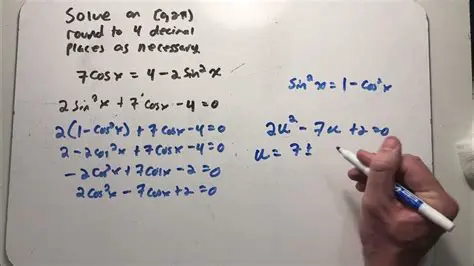 Solve on [0,2π)
round to 4 decimal
places as necessary
7cosx = 4 - 2sin²x
2sin²x + 7cosx - 4 = 0
2(1 - cos²x) + 7cosx - 4 = 0
2 - 2cos²x + 7cosx - 4 = 0
-2cos²x + 7cosx - 2 = 0
2cos²x - 7cosx + 2 = 0
sin²x = 1 - cos²x
2u² - 7u + 2 = 0
u = 7 ±